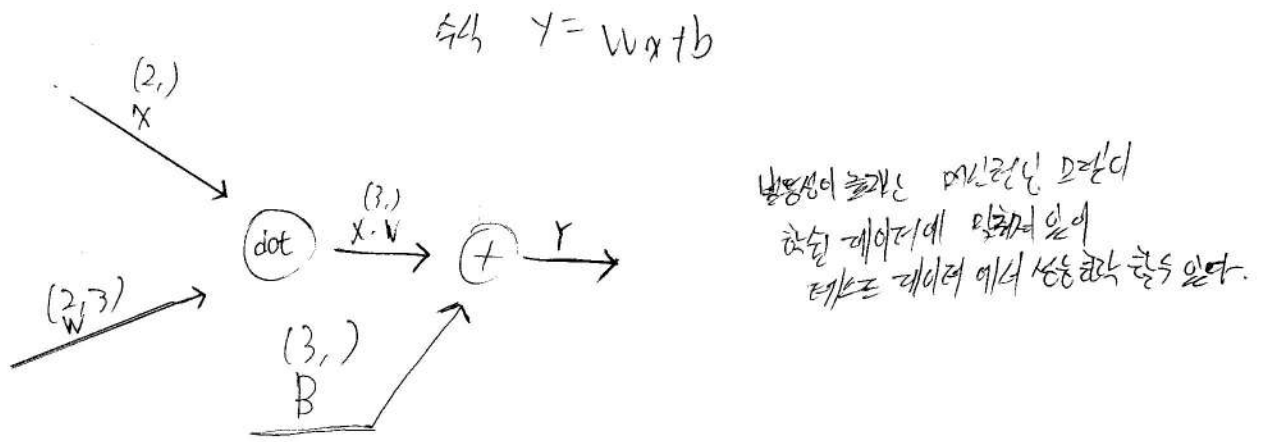 수식 Y = Wx+b
(2,)
X
dot
(3,)
X·W
+
Y
(2,3)
W
(3,)
B
머신러닝 모델이
학습 데이터에 맞춰져 있어
테스트 데이터 에서 성능하락 할수 있다.